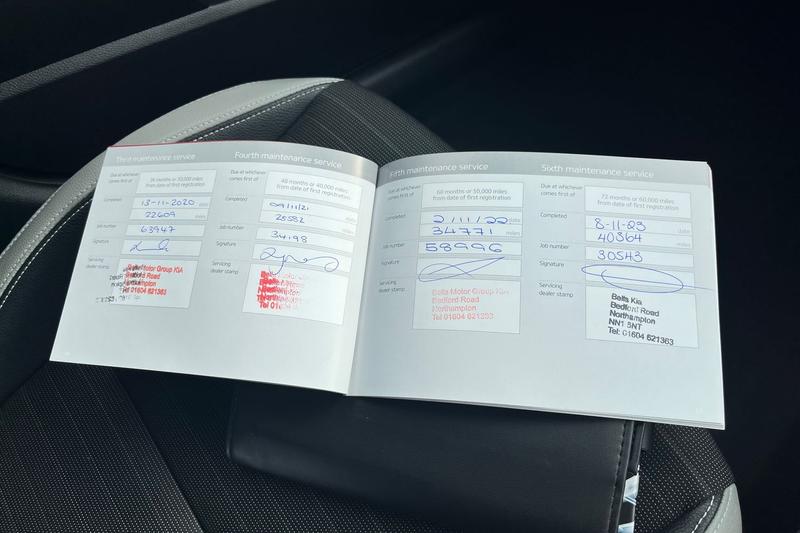 Third maintenance service
Due at whichever comes first of
36 months or 30,000 miles
from date of first registration
Completed
13-11-2020 date
22609 miles
Job number
63947
Signature
Servicing
dealer stamp
Motor Group KIA
Bedford Road
Northampton
Tel 01604 621363
Fourth maintenance service
Due at whichever
comes first of
48 months or 40,000 miles
from date of first registration
Completed
09/11/21
25582 miles
Job number
34198
Signature
Servicing
dealer stamp
Tel 01604
Fifth maintenance service
Due at whichever
comes first of
60 months or 50,000 miles
from date of first registration
Completed
2/11/22 date
34771 miles
Job number
58996
Signature
Servicing
dealer stamp
Bells Motor Group KIA
Bedford Road
Northampton
Tel 01604 621363
Sixth maintenance service
Due at whichever
comes first of
72 months or 60,000 miles
from date of first registration
Completed
8-11-23 date
40364 miles
Job number
30543
Signature
Servicing
dealer stamp
Bells Kia
Bedford Road
Northampton
NN1 5NT
Tel: 01604 621363